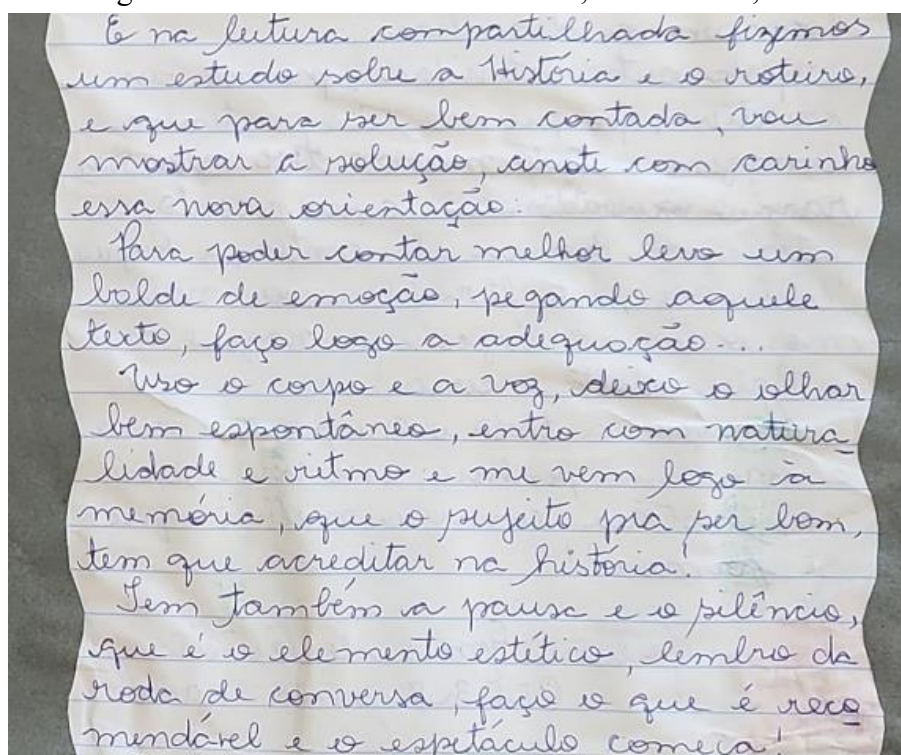 E na leitura compartilhada fizemos
um estudo sobre a História e o roteiro,
e que para ser bem contada, vou
mostrar a solução, anote com carinho
essa nova orientação:
Para poder contar melhor levo um
balde de emoção, pegando aquele
texto, faço logo a adequação...
Uso o corpo e a voz, deixo o olhar
bem espontâneo, entro com natura
lidade e ritmo e me vem logo à
memória, que o sujeito pra ser bom,
tem que acreditar na história!
Tem também a pausa e o silêncio,
que é o elemento estético, lembro da
roda de conversa, faço o que é reco
mendável e o espetáculo começa!